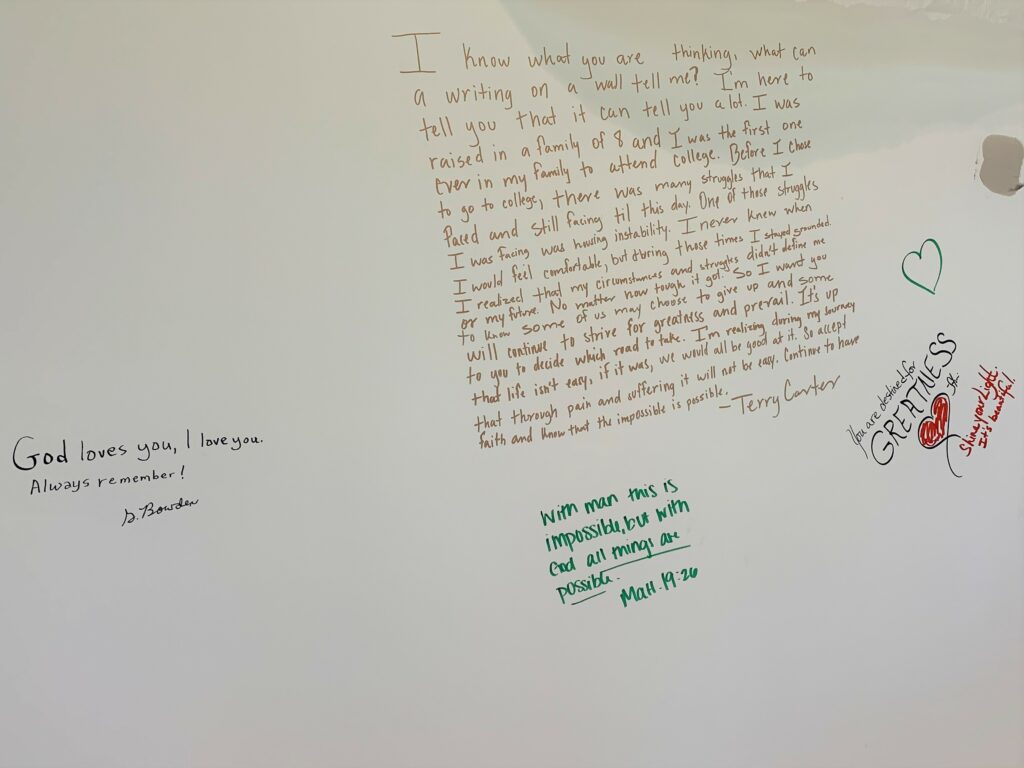 I know what you are thinking, what can
a writing on a wall tell me? I'm here to
tell you that it can tell you a lot. I was
raised in a family of 8 and I was the first one
ever in my family to attend college. Before I chose
to go to college, there was many struggles that I
faced and still facing til this day. One of those struggles
I was facing was housing instability. I never knew when
I would feel comfortable, but during those times I stayed grounded.
I realized that my circumstances and struggles didn't define me
or my future. No matter how tough it got. So I want you
to know some of us may choose to give up and some
will continue to strive for greatness and prevail. It's up
to you to decide which road to take. I'm realizing during my journey
that life isn't easy, if it was, we would all be good at it. So accept
that through pain and suffering it will not be easy. Continue to have
faith and know that the impossible is possible.
-Terry Carter
God loves you, I love you.
Always remember!
Bowden
With man this is
impossible, but with
God all things are
possible.
Matt. 19:26
You are destined for
GREATNESS
Shine your Light.
It's beautiful.